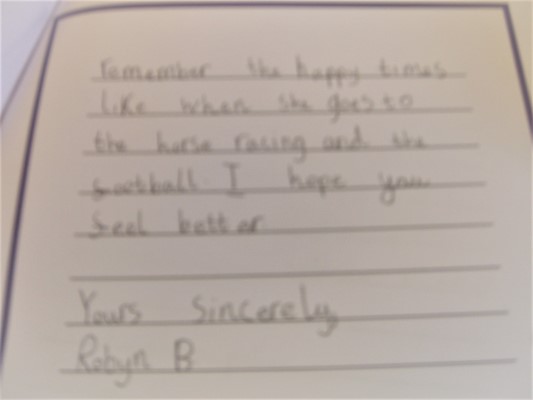 remember the happy times
like when she goes to
the horse racing and the
football I hope you
feel better
Yours Sincerely,
Robyn B